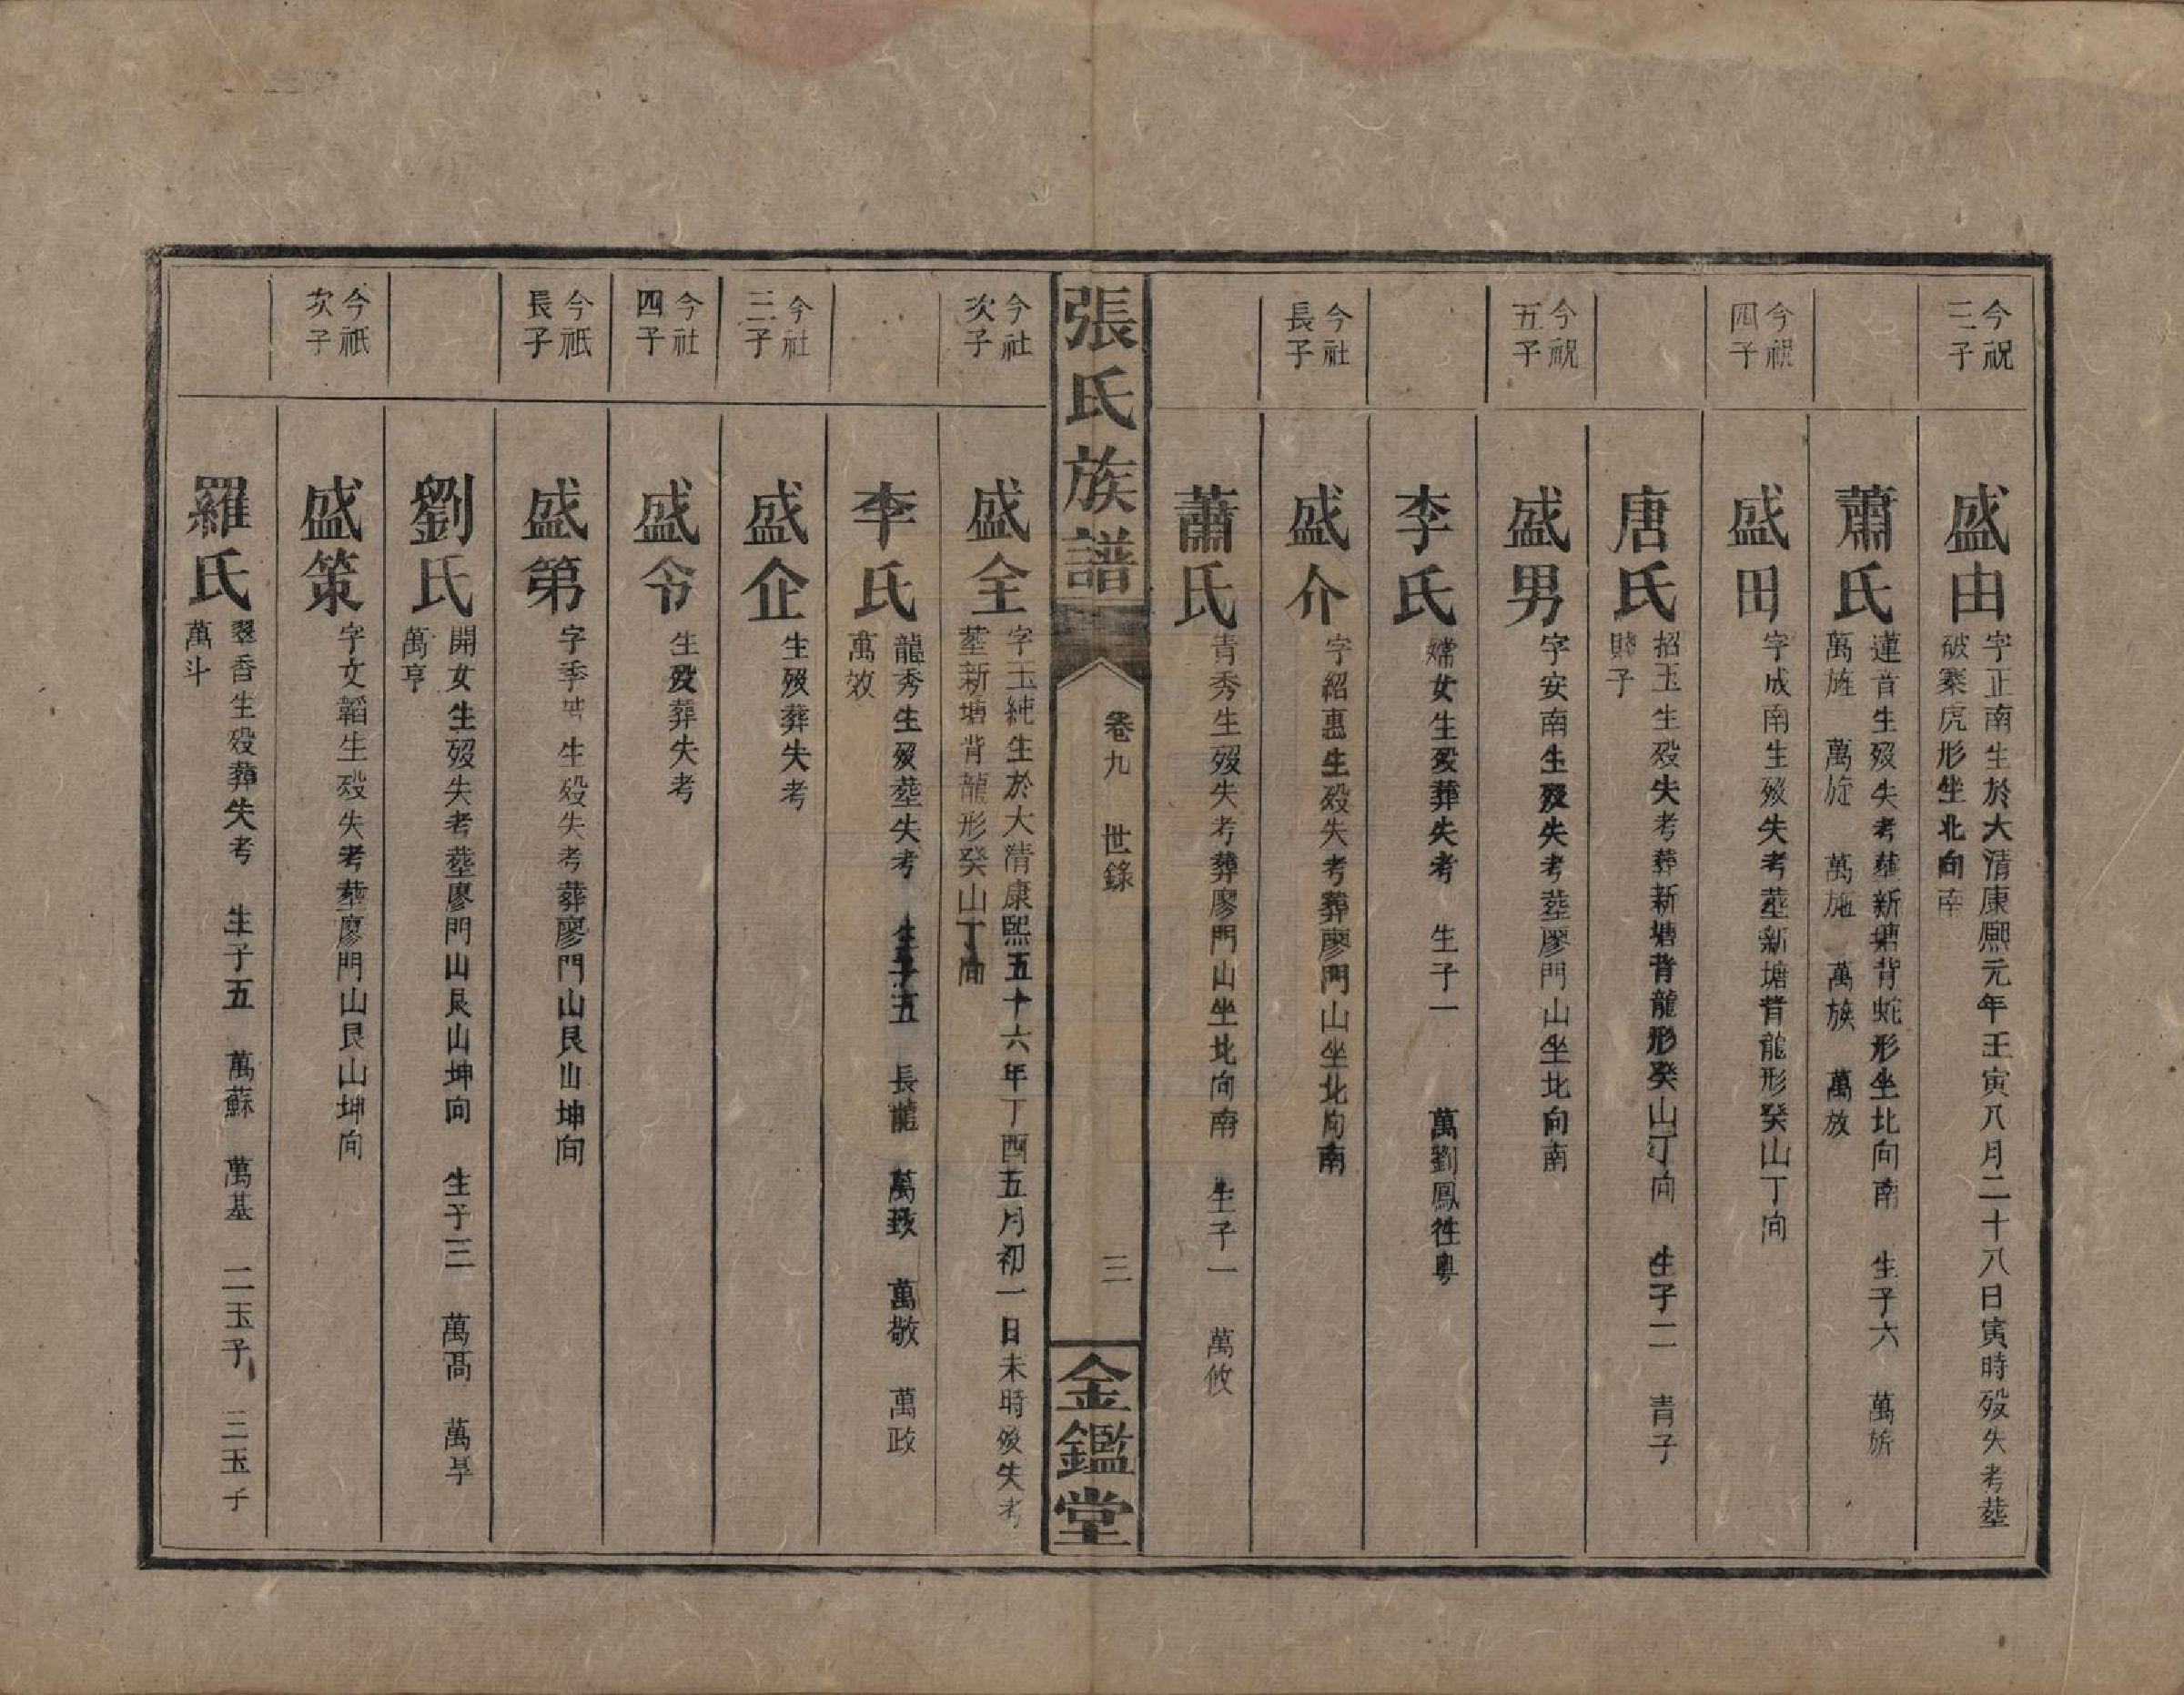 今祝
三子
盛由
字正南生於大清康熙元年壬寅八月二十八日寅時歿失考塟
破寨虎形坐北向南
蕭氏
蓮音生歿失考塟新塘背蛇形坐北向南 生子六 萬旂
萬旌 萬旋 萬施 萬族 萬放
今祝
四子
盛田
字成南生歿失考塟新塘背龍形癸山丁向
唐氏
招玉生歿失考葬新塘背龍形癸山丁向 生子二 青子
賤子
今祝
五子
盛男
字安南生歿失考塟廖門山坐北向南
李氏
嬬女生歿葬失考 生子一 萬劉鳳徃粵
今社
長子
盛介
字紹惠生歿失考葬廖門山坐北向南
蕭氏
青秀生歿失考葬廖門山坐北向南 生子一 萬攸
張氏族譜
卷九 世錄
三
金鑑堂
今社
次子
盛全
字玉純生於大清康熙五十六年丁酉五月初一日未時歿失考
塟新塘背龍形癸山丁向
李氏
龍秀生歿塟失考 生子五 長龍 萬致 萬敬 萬政
萬效
今社
三子
盛企
生歿葬失考
今社
四子
盛令
生歿葬失考
今祇
長子
盛第
字季 生歿失考葬廖門山艮山坤向
劉氏
開女生歿失考塟廖門山艮山坤向 生子三 萬高 萬旱
萬亨
今祇
次子
盛策
字文韜生歿失考塟廖門山艮山坤向
羅氏
翠香生歿葬失考 生子五 萬蘇 萬基 二玉子 三玉子
萬斗